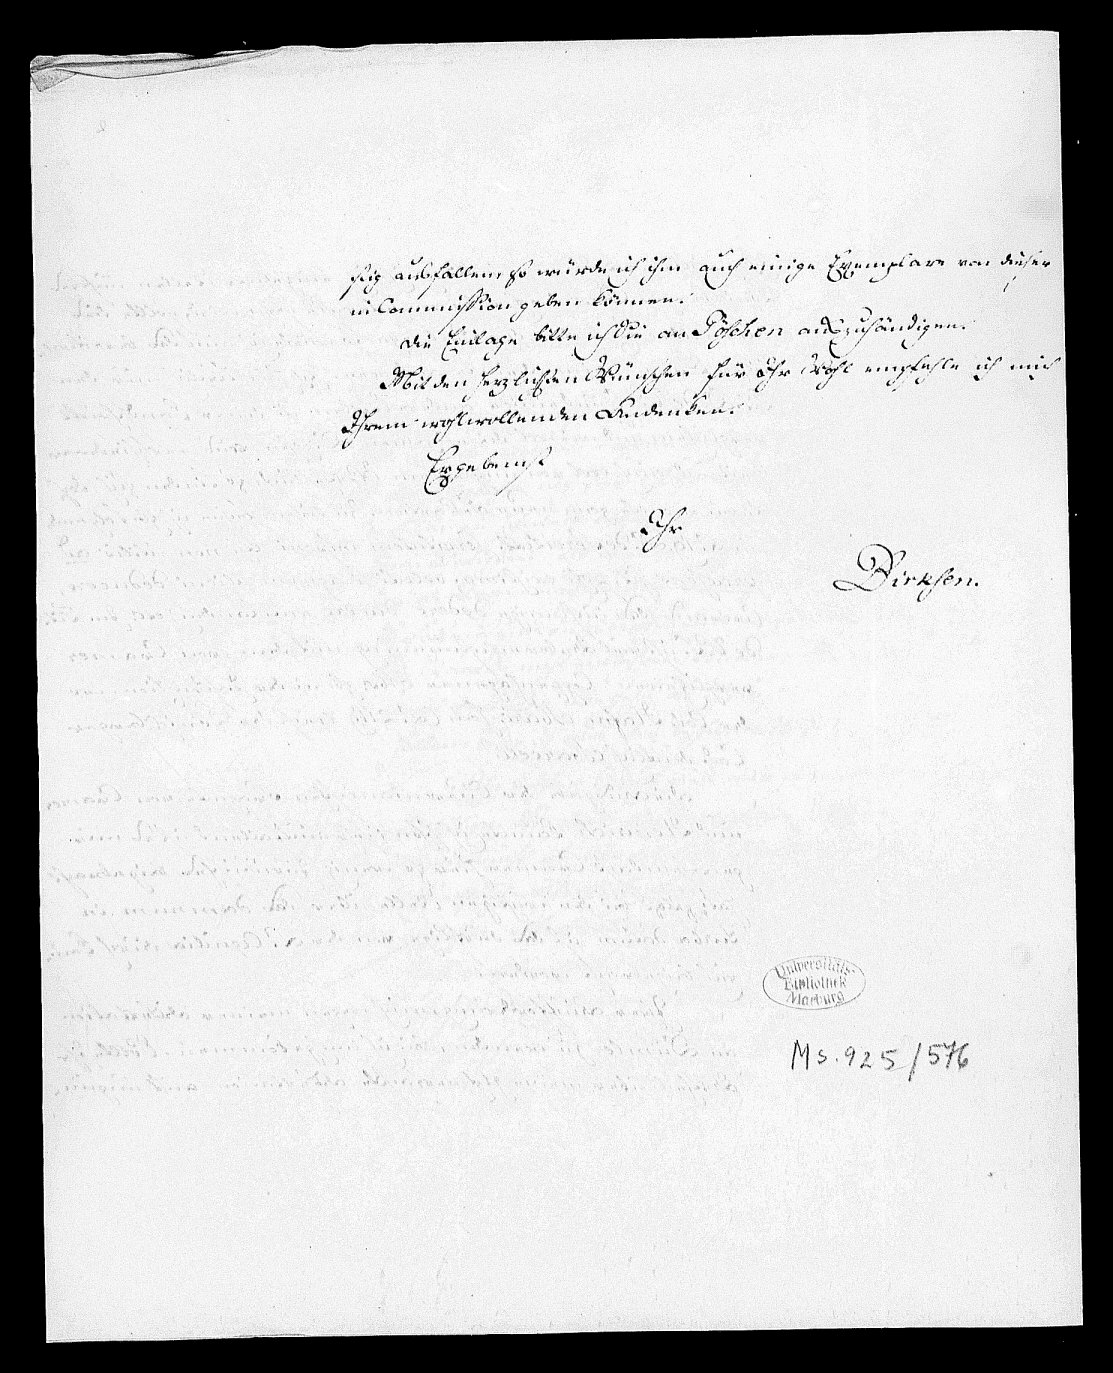 stig ausfallen, so würde ich ihm auch einige Exemplare von dieser
in Commission geben können.
Die Einlage bitte ich Sie an Göschen auszuhändigen.
Mit den herzlichsten Wünschen für Ihr Wohl empfehle ich mich
Ihrem wohlwollenden Andenken.
Ergebenst
Ihr
Dirksen.
Universitäts-
Bibliothek
Marburg
Ms. 925/576